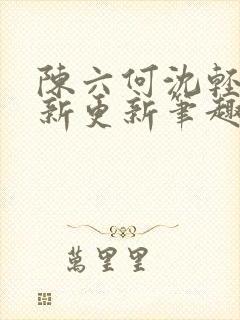 陳六何沈輕
新更新筆趣
萬里里